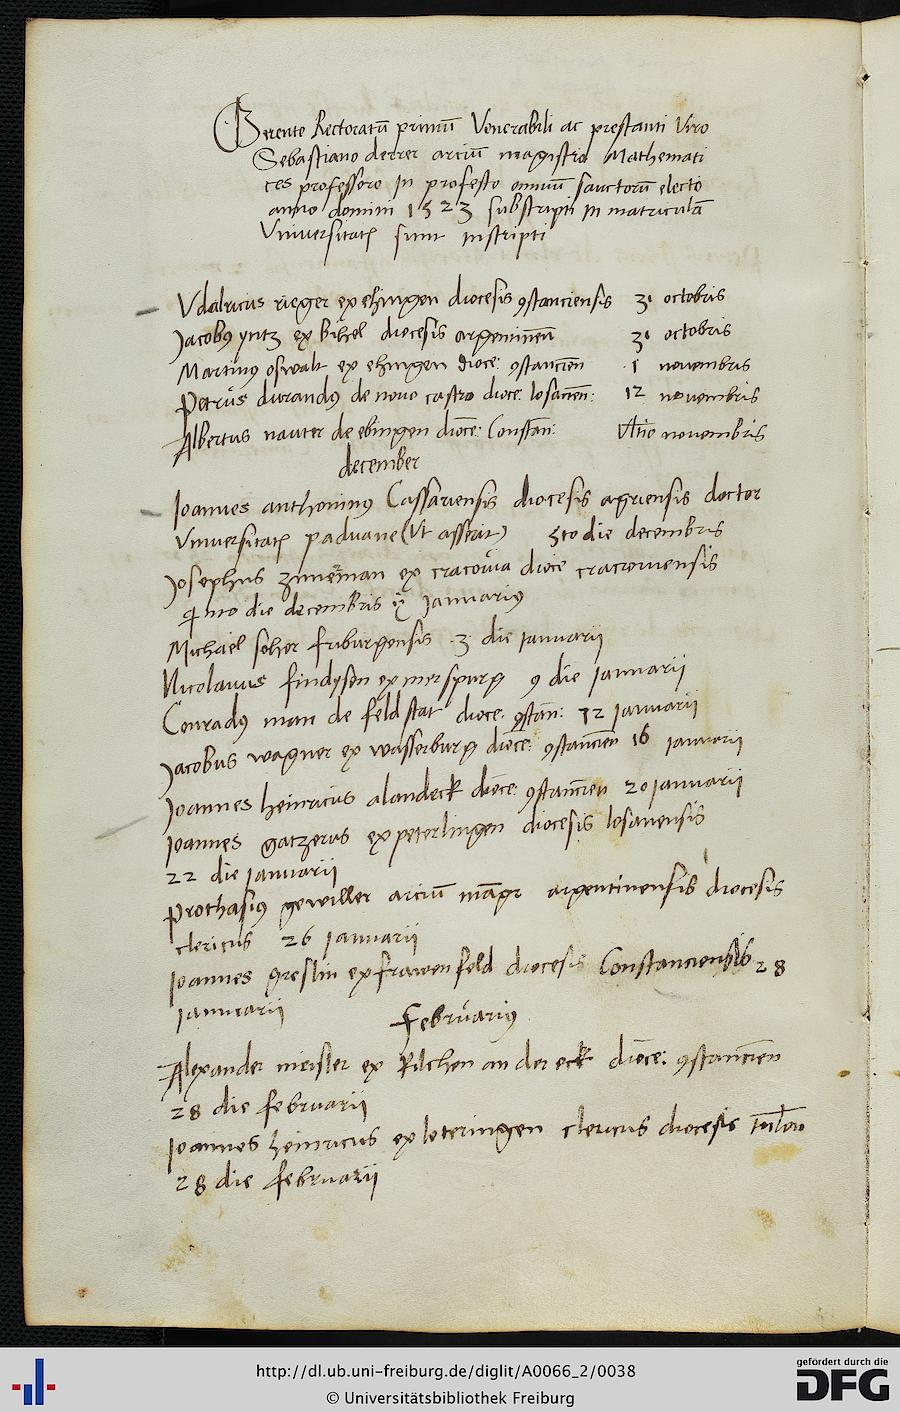 Gerente Rectoratū primū Venerabili ac prestanti Viro
Sebastiano derrer arciū magistro Mathemati
ces professore In profesto omniū sanctorū electo
anno domini 1523 subscripti In matriculā
Vniuersitatꝭ sunt Inscripti
Vdalricus rieger ex ehingen diocesis ꝯstanciensis 31 octobris
Jacobꝰ yntz ex bihel diocesis argentineñ 31 octobris
Martinꝰ oswalt ex ehingen dioce: ꝯstancieñ 1 nouembris
Petrus durandꝰ de nouo castro dioce: losaneñ: 12 nouembris
Albertus nauter de ebingen dioce: Constañ: Vltīo nouembris
december
Ioannes anthoninꝰ Cassariensis diocesis agriensis doctor
Vniuersitatꝭ paduane (Vt asserit) 5to die decembris
Josephus zimerman ex cracouia dioce cracouiensis
die decembris Januariꝰ
Michael soher friburgensis 3 die Ianuarij
Nicolaus findysen ex merspurg 9 die Ianuarij
Conradꝰ man de feldstat dioce: ꝯstañ: 12 Ianuarij
Jacobus wagner ex wasserburg dioce: ꝯstancieñ 16 Ianuarij
Joannes heinricus alandeck dioce: ꝯstancieñ 20 Ianuarij
Ioannes gatzerus ex peterlingen diocesis losanensis
22 die Ianuarij
Prothasiꝰ gewiller arciū māgr argentinensis diocesis
clericus 26 Ianuarij
Ioannes greslin ex frawenfeld diocesis Constanciensis 28
Ianuarij
Februariꝰ
Alexander meister ex kilchen an der eck dioce: ꝯstancieñ
28 die februarij
Ioannes heinricus ex loteringen clericus diocesis
28 die februarij
http://dl.ub.uni-freiburg.de/diglit/A0066_2/0038
© Universitätsbibliothek Freiburg
gefördert durch die
DFG